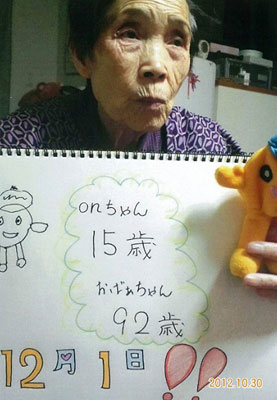 onちゃん
15歳
おばぁちゃん
92歳
12月1日!!
2012.10.30